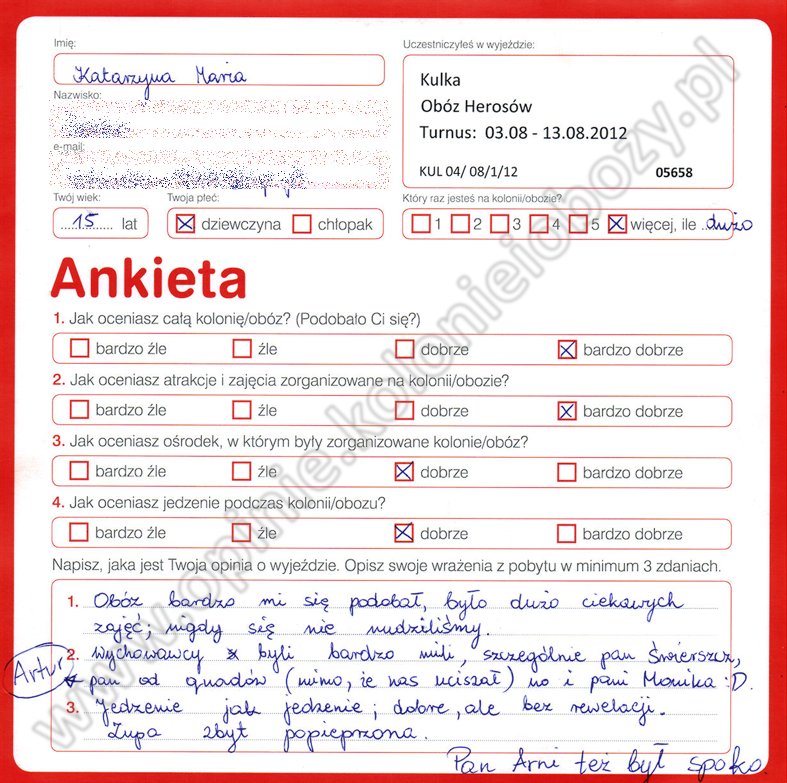 Imię:
Katarzyna Maria
Nazwisko:
e-mail:
Uczestniczyłeś w wyjeździe:
Kulka
Obóz Herosów
Turnus: 03.08 - 13.08.2012
KUL 04/ 08/1/12 05658
Twój wiek:
15 lat
Twoja płeć:
dziewczyna chłopak
Który raz jesteś na kolonii/obozie?
1 2 3 4 5 więcej, ile dużo
Ankieta
1. Jak oceniasz całą kolonię/obóz? (Podobało Ci się?)
bardzo źle źle dobrze bardzo dobrze
2. Jak oceniasz atrakcje i zajęcia zorganizowane na kolonii/obozie?
bardzo źle źle dobrze bardzo dobrze
3. Jak oceniasz ośrodek, w którym były zorganizowane kolonie/obóz?
bardzo źle źle dobrze bardzo dobrze
4. Jak oceniasz jedzenie podczas kolonii/obozu?
bardzo źle źle dobrze bardzo dobrze
Napisz, jaka jest Twoja opinia o wyjeździe. Opisz swoje wrażenia z pobytu w minimum 3 zdaniach.
1. Obóz bardzo mi się podobał, było dużo ciekawych
zajęć; nigdy się nie nudziliśmy.
2. Wychowawcy byli bardzo mili, szczególnie pan Świerszcz,
Artur
pan od quadów (mimo, że nas uciszał) no i pani Monika :D.
3. Jedzenie jak jedzenie; dobre, ale bez rewelacji.
Zupa zbyt popieprzona.
Pan Arni też był spoko
www.opinie.kolonieiobozy.pl